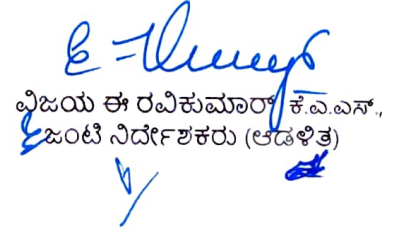 ವಿಜಯ ಈ ರವಿಕುಮಾರ್ ಕೆ.ಎ.ಎಸ್.,
ಜಂಟಿ ನಿರ್ದೇಶಕರು (ಆಡಳಿತ)